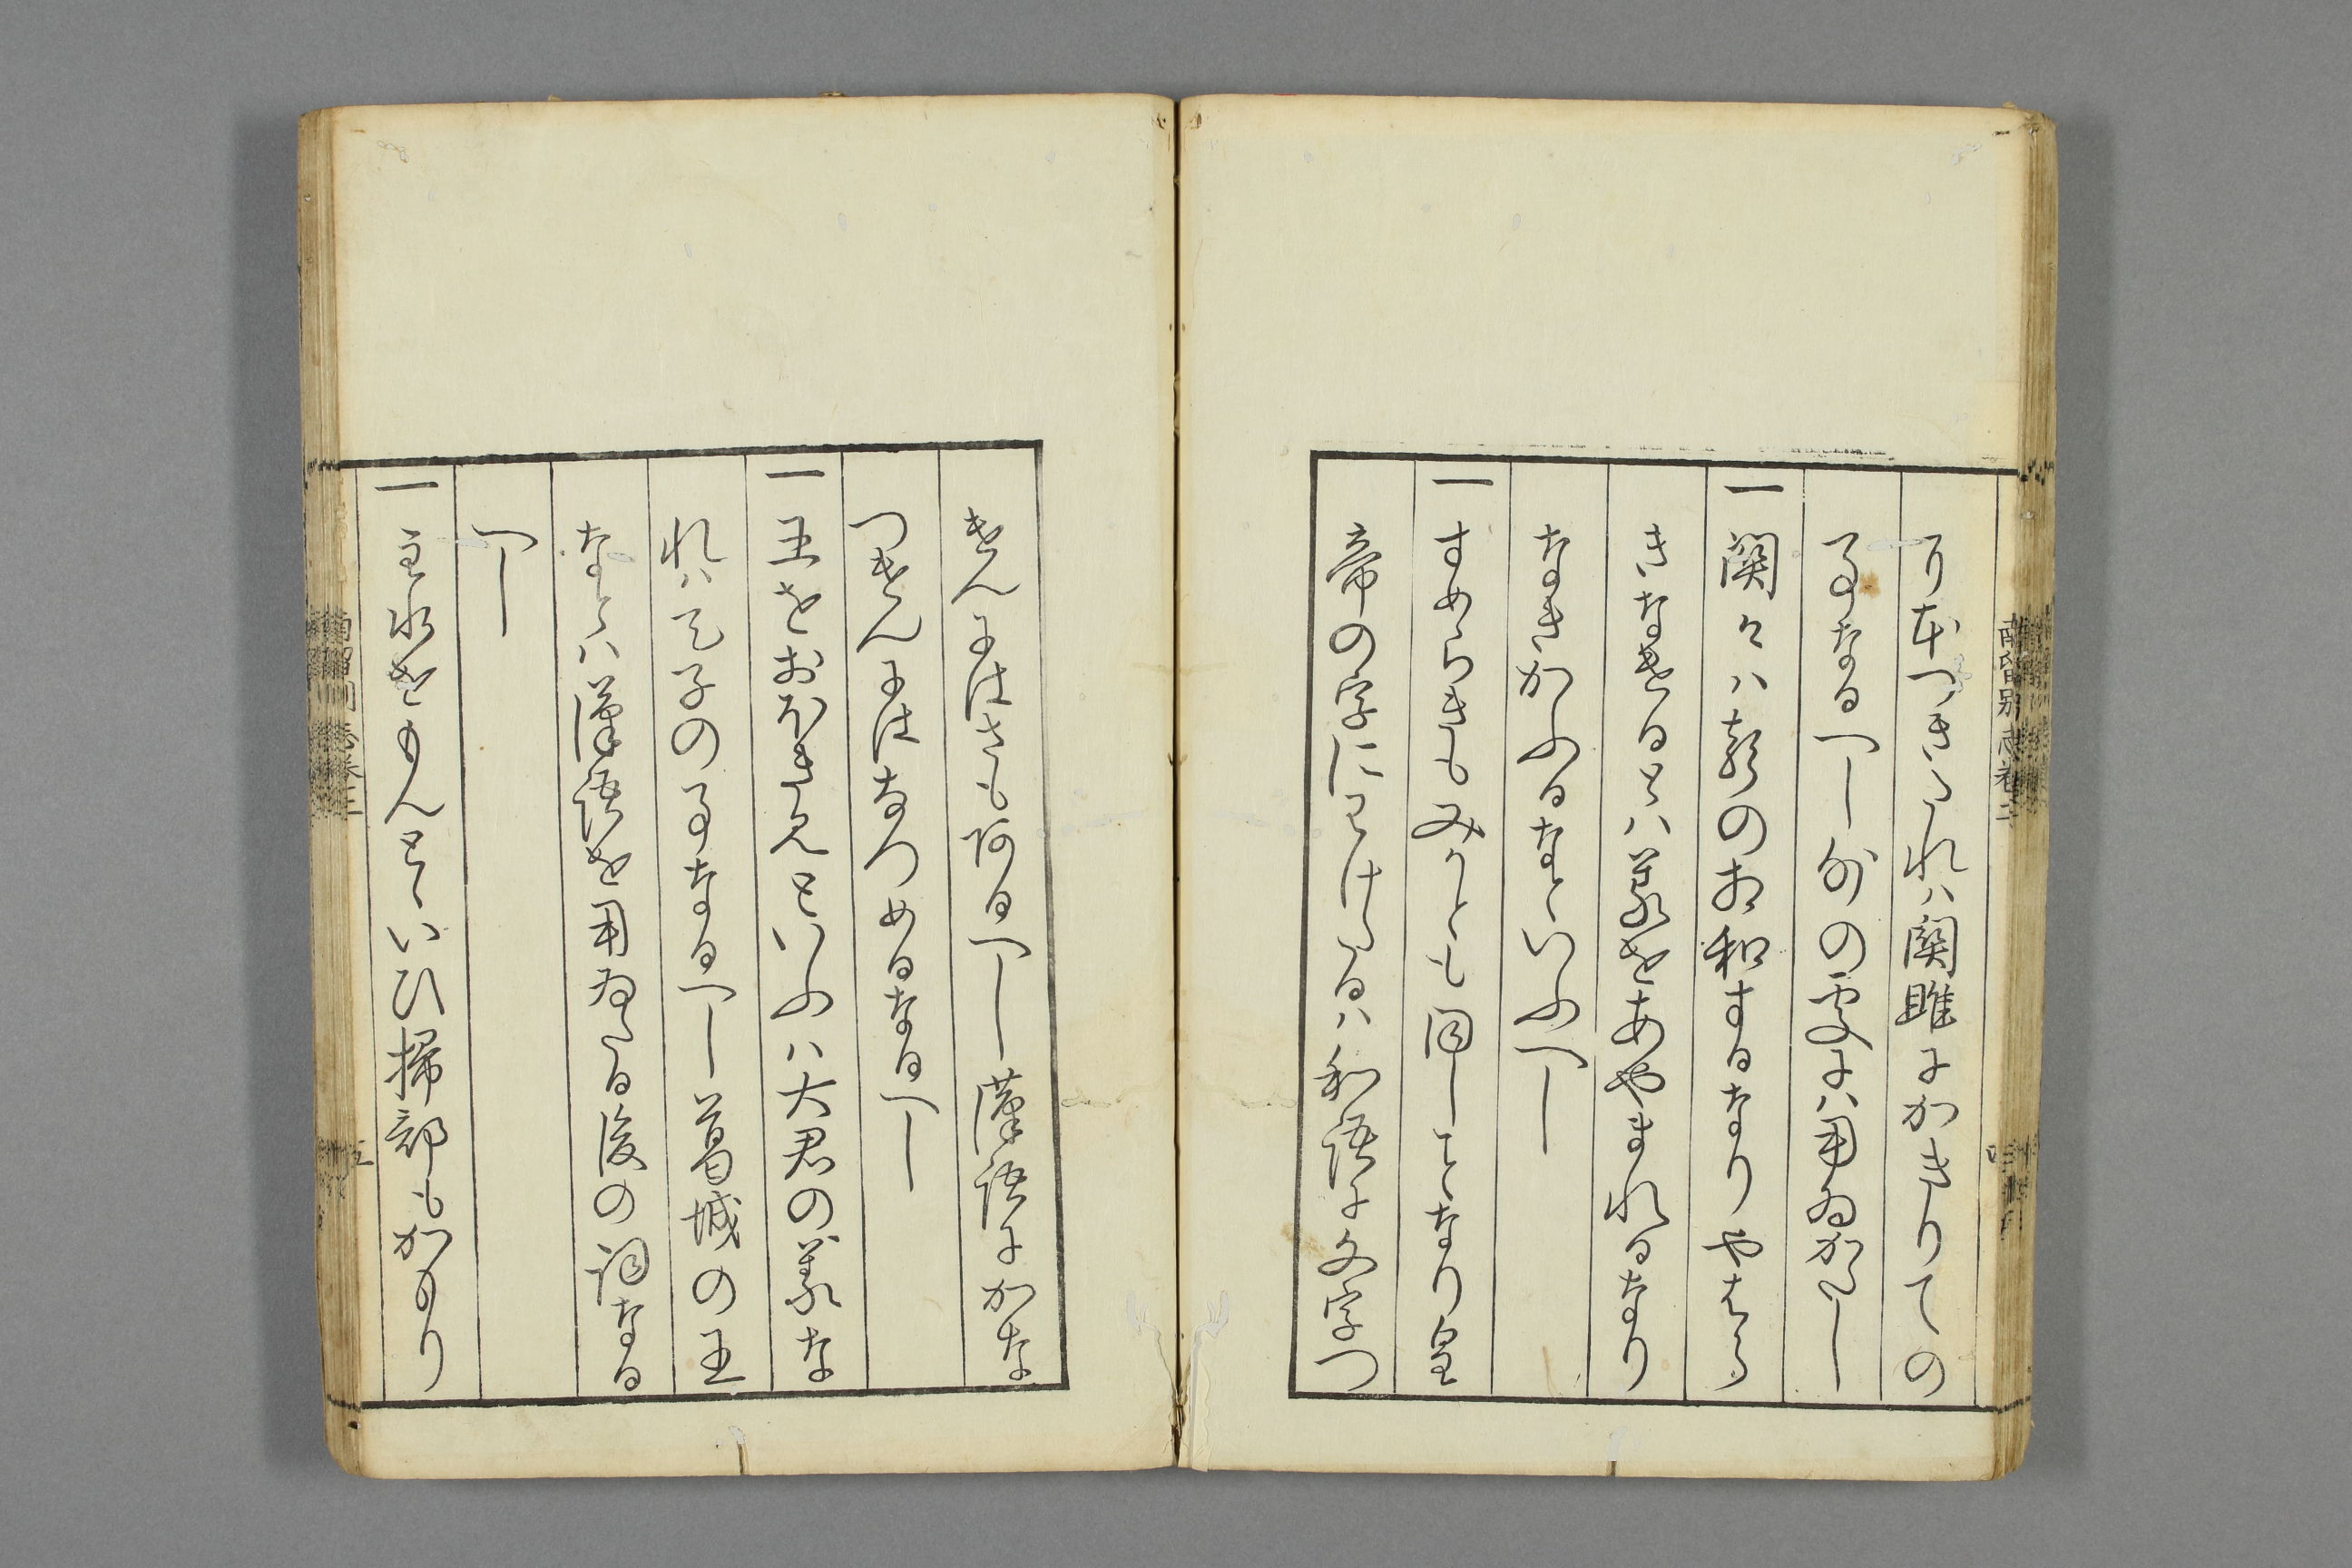 りなつきたれハ関雎にかきりての
事なるへし外の処にハ用ゐかたし
一 関々ハ聲のお和するなりやはら
きなけるとハ義をあやまれるなり
なきかふるなといふへし
一 すめらきもみかとも同しことなり皇
帝の字にわけたるハ和語に文字つ
けんにはさも阿るへし漢語にかな
つけんにはなつめるなるへし
一 王をおほきみといふハ大君の義な
れハ天子の事なるへし葛城の王
なとハ漢語を用ゐたる後の詞なる
へし
一 主水をもんとといひ掃部もかもり
南留別志巻二